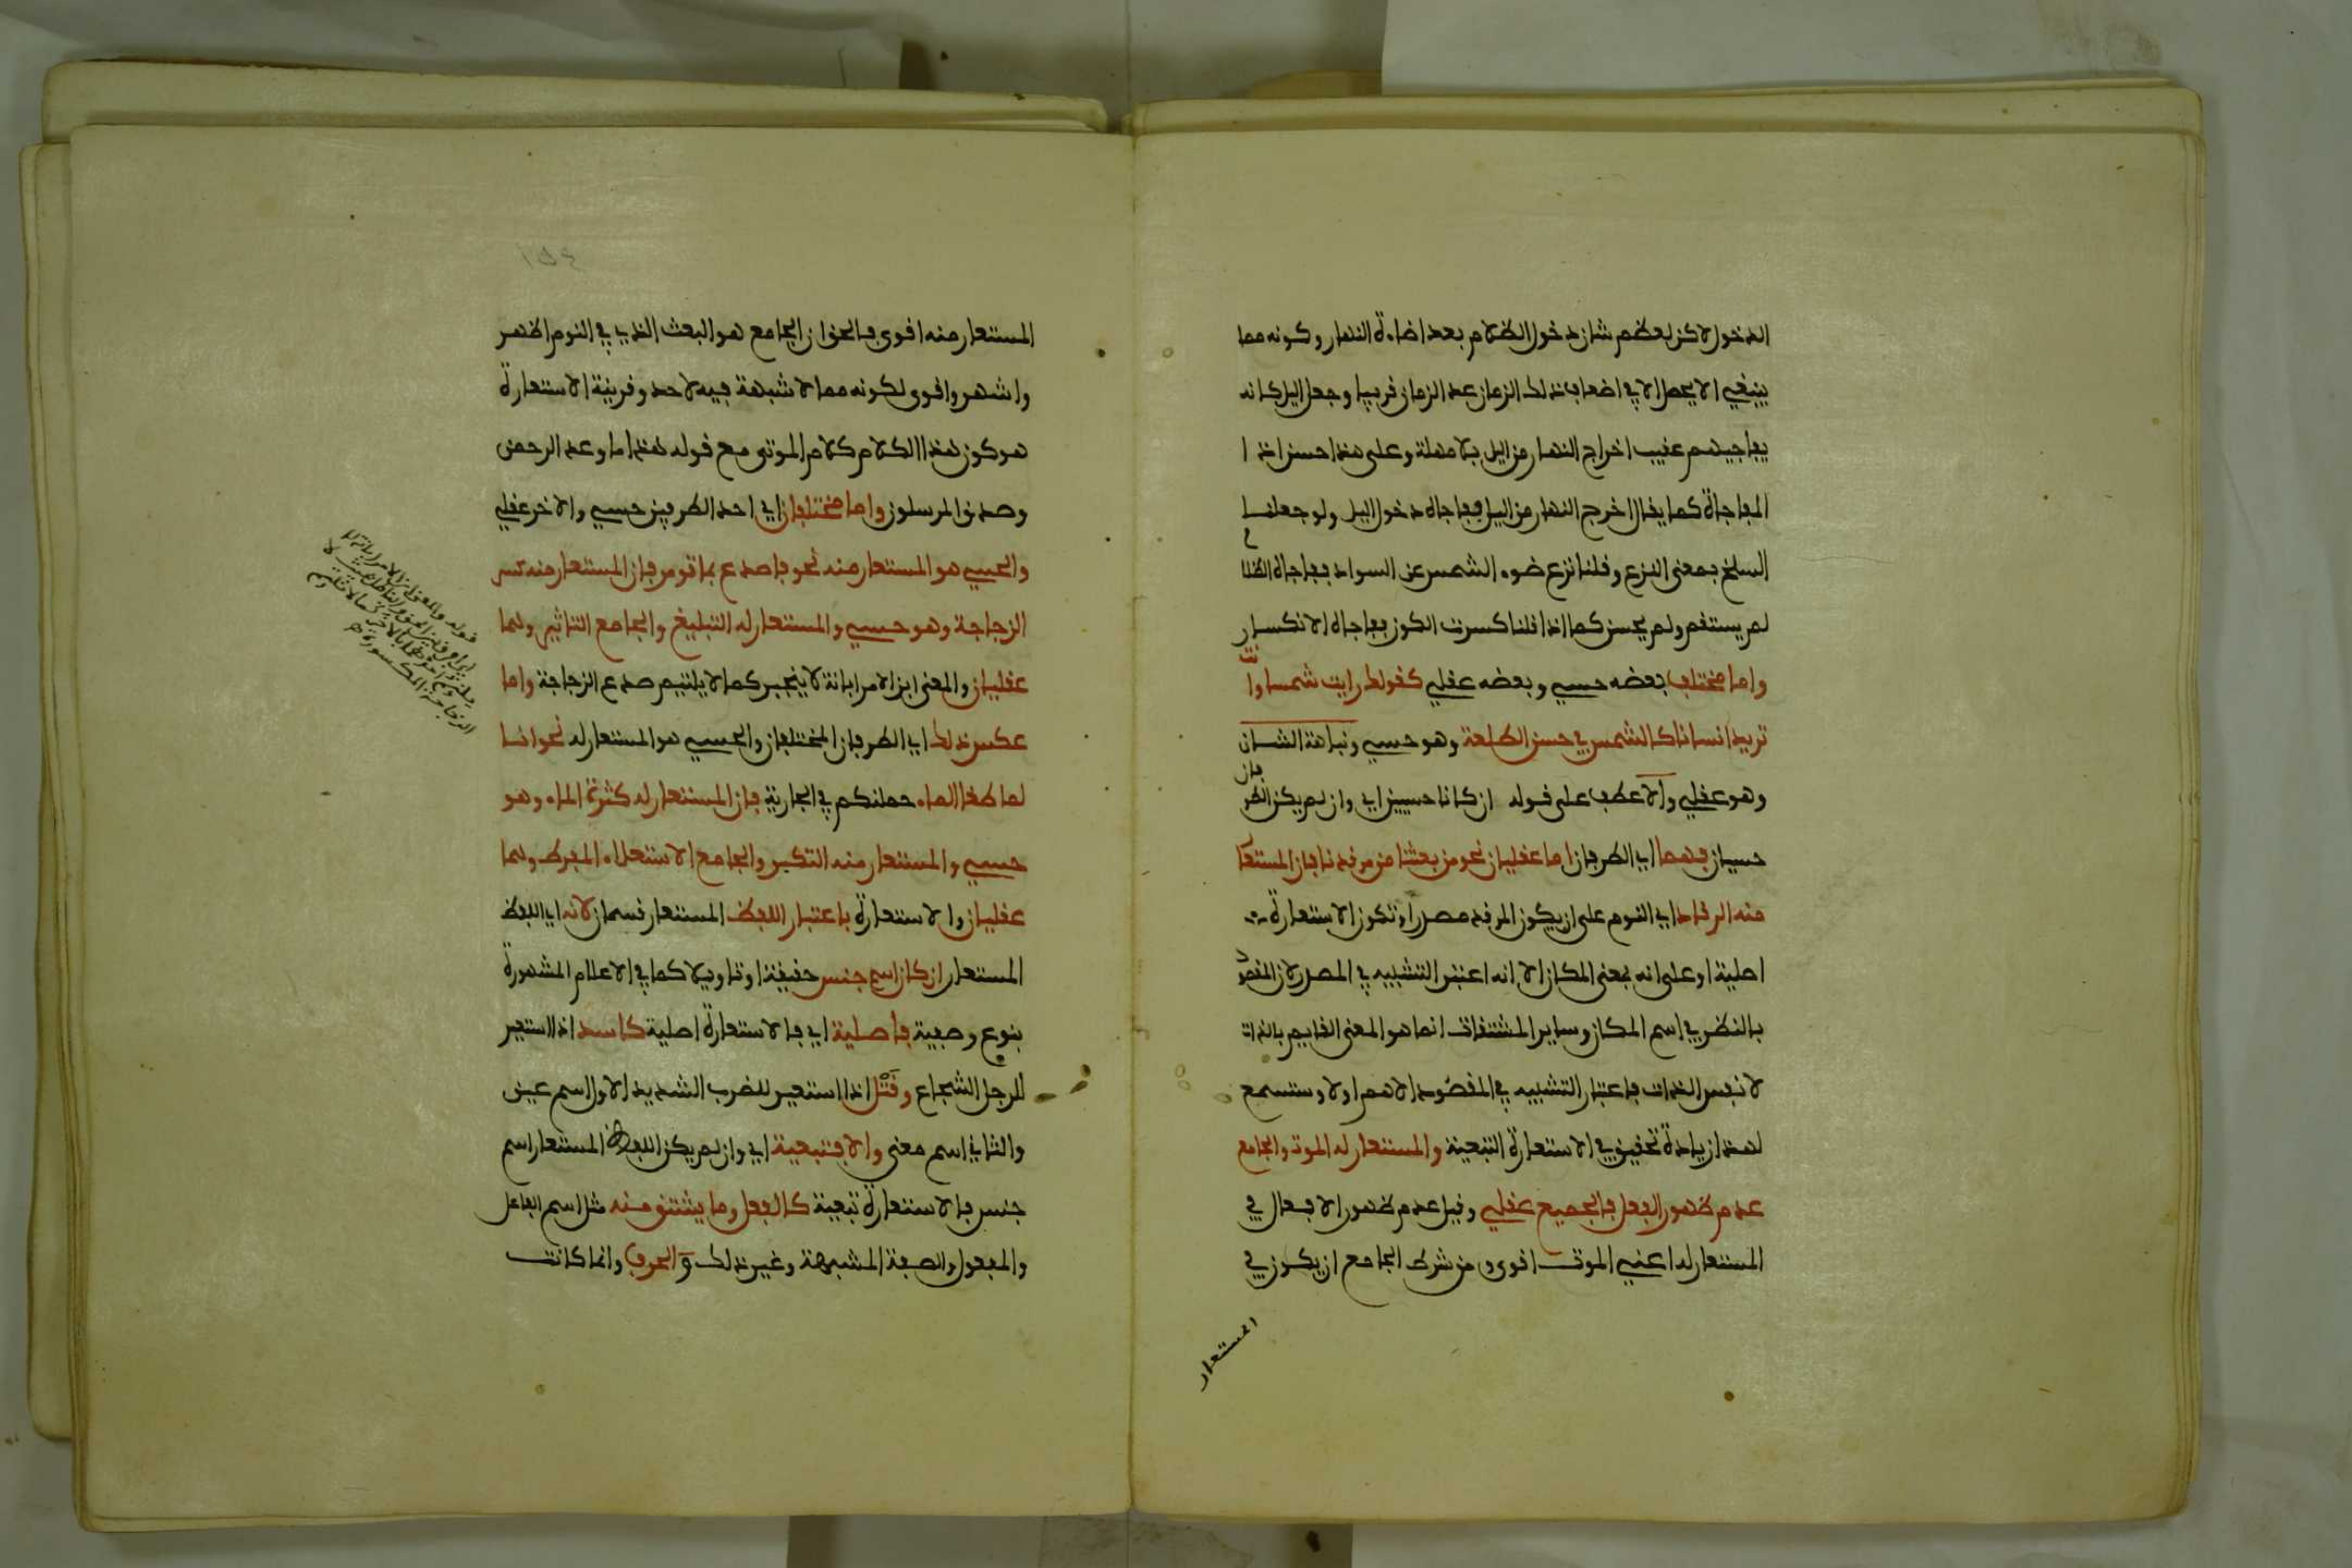 الدخول لاكن لعظم شان دخول الظلام بعد اضاءة النهار وكونه مما
ينبغي الا يحصل الا في اضعاف ذلك الزمان عد الزمان قريبا وجعل اليل كانه
يفاجيهم عقيب اخراج النهار من اليل بلا مهلة وعلى هذا حسن اذا
المفاجاة كما يقال اخرج النهار من اليل ففاجاه دخول اليل ولو جعلنا
السلخ بمعنى النزع وقلنا نزع ضوء الشمس عن السواد ففاجاه الظلام
لم يستقم ولم يحسن كما اذا قلنا كسرت الكوز ففاجاه الانكسار
واما مختلف بعضه حسي وبعضه عقلي كقولك رايت شمسا وانت
تريد انسانا كالشمس في حسن الطلعة وهو حسي ونباهة الشان
وهو عقلي والا عطف على قوله ان كانا حسيين اي وان لم يكن الطرفان
حسيان فهما اي الطرفان اما عقليان نحو من بعثنا من مرقدنا فان المستعار
منه الرقاد اي النوم على ان يكون المرقد مصدرا وتكون الاستعارة
اصلية او على انه بمعنى المكان الا انه اعتبر التشبيه في المصدر لان المقصود
بالنظر في اسم المكان وساير المشتقات انما هو المعنى القايم بالذات
لا نفس الذات فاعتبار التشبيه في المقصود الاهم اولا وستسمع
لهذا زيادة تحقيق في الاستعارة التبعية والمستعار له الموت والجامع
عدم ظهور الفعل فالجميع عقلي وقيل عدم ظهور الافعال في
المستعار له اعني الموت اقوى ومن شرط الجامع ان يكون في
المستعار
المستعار منه اقوى فالحق ان الجامع هو البعث الذي في النوم اظهر
واشهر واقوى لكونه مما لا شبهة فيه لاحد وقرينة الاستعارة
هو كون هذا الكلام كلام الموتى مع قوله هذا ما وعد الرحمن
وصدق المرسلون واما مختلفان اي احد الطرفين حسي والاخر عقلي
والحسي هو المستعار منه نحو فاصدع بما تومر فان المستعار منه كسر
الزجاجة وهو حسي والمستعار له التبليغ والجامع التاثير وهما
عقليان والمعنى ابن الامر ابانة لا ينجبر كما لا يلتيم صدع الزجاجة واما
عكس ذلك اي الطرفان المختلفان والحسي هو المستعار له نحو انا
لما طغا الماء حملنكم في الجارية فان المستعار له كثرة الماء وهو
حسي والمستعار منه التكبر والجامع الاستعلاء المفرط وهما
عقليان والاستعارة باعتبار اللفظ المستعار قسمان لانه اي اللفظ
المستعار ان كان اسم جنس حقيقة او تاويلا كما في الاعلام المشهورة
بنوع وصفية فاصلية اي فالاستعارة اصلية كاسد اذا استعير
للرجل الشجاع وقتل اذا استعير للضرب الشديد الاول اسم عين
والثاني اسم معنى والا فتبعية اي وان لم يكن اللفظ المستعار اسم
جنس فالاستعارة تبعية كالفعل وما يشتق منه مثل اسم الفاعل
والمفعول والصفة المشبهة وغير ذلك و الحرف وانما كانت